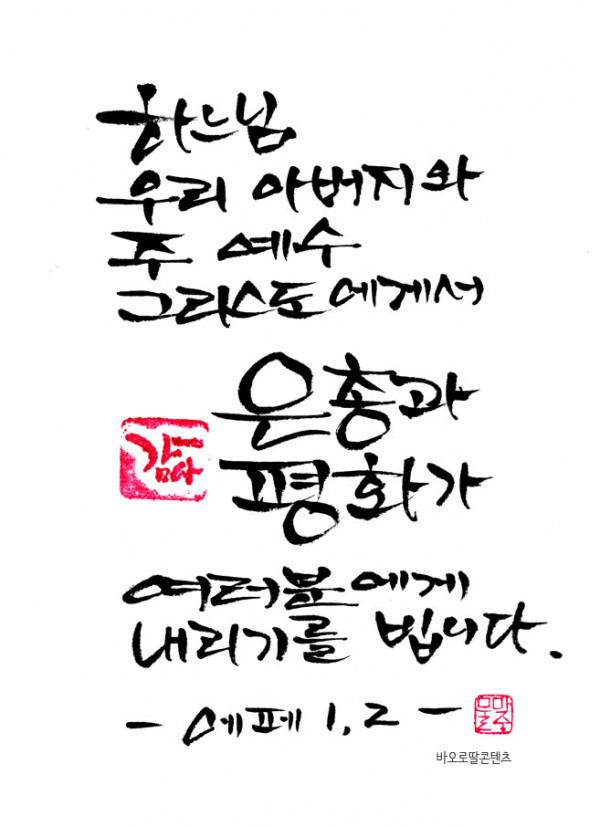 하느님
우리 아버지와
주 예수
그리스도에게서
은총과
감사
평화가
여러분에게
내리기를 빕니다.
- 에페 1, 2 -
바오로딸콘텐츠